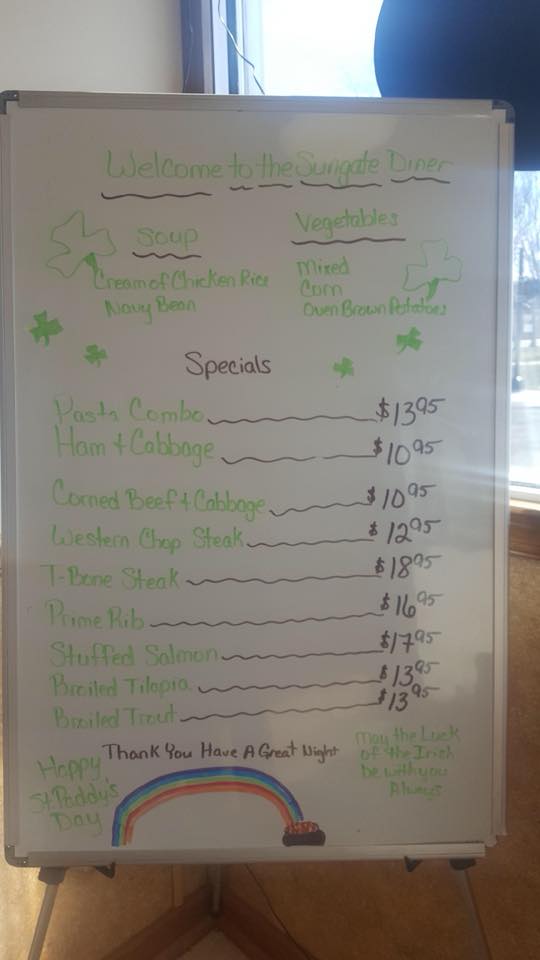 Welcome to the Sungate Diner
Soup
Cream of Chicken Rice
Navy Bean
Vegetables
Mixed
Corn
Oven Brown Potatoes
Specials
Pasta Combo $13.95
Ham & Cabbage $10.95
Corned Beef & Cabbage $10.95
Western Chop Steak $12.95
T-Bone Steak $18.95
Prime Rib $16.95
Stuffed Salmon $17.95
Broiled Tilapia $13.95
Broiled Trout $13.95
Thank You Have A Great Night
Happy
St Paddy's
Day
May the Luck
of the Irish
be with you
Always